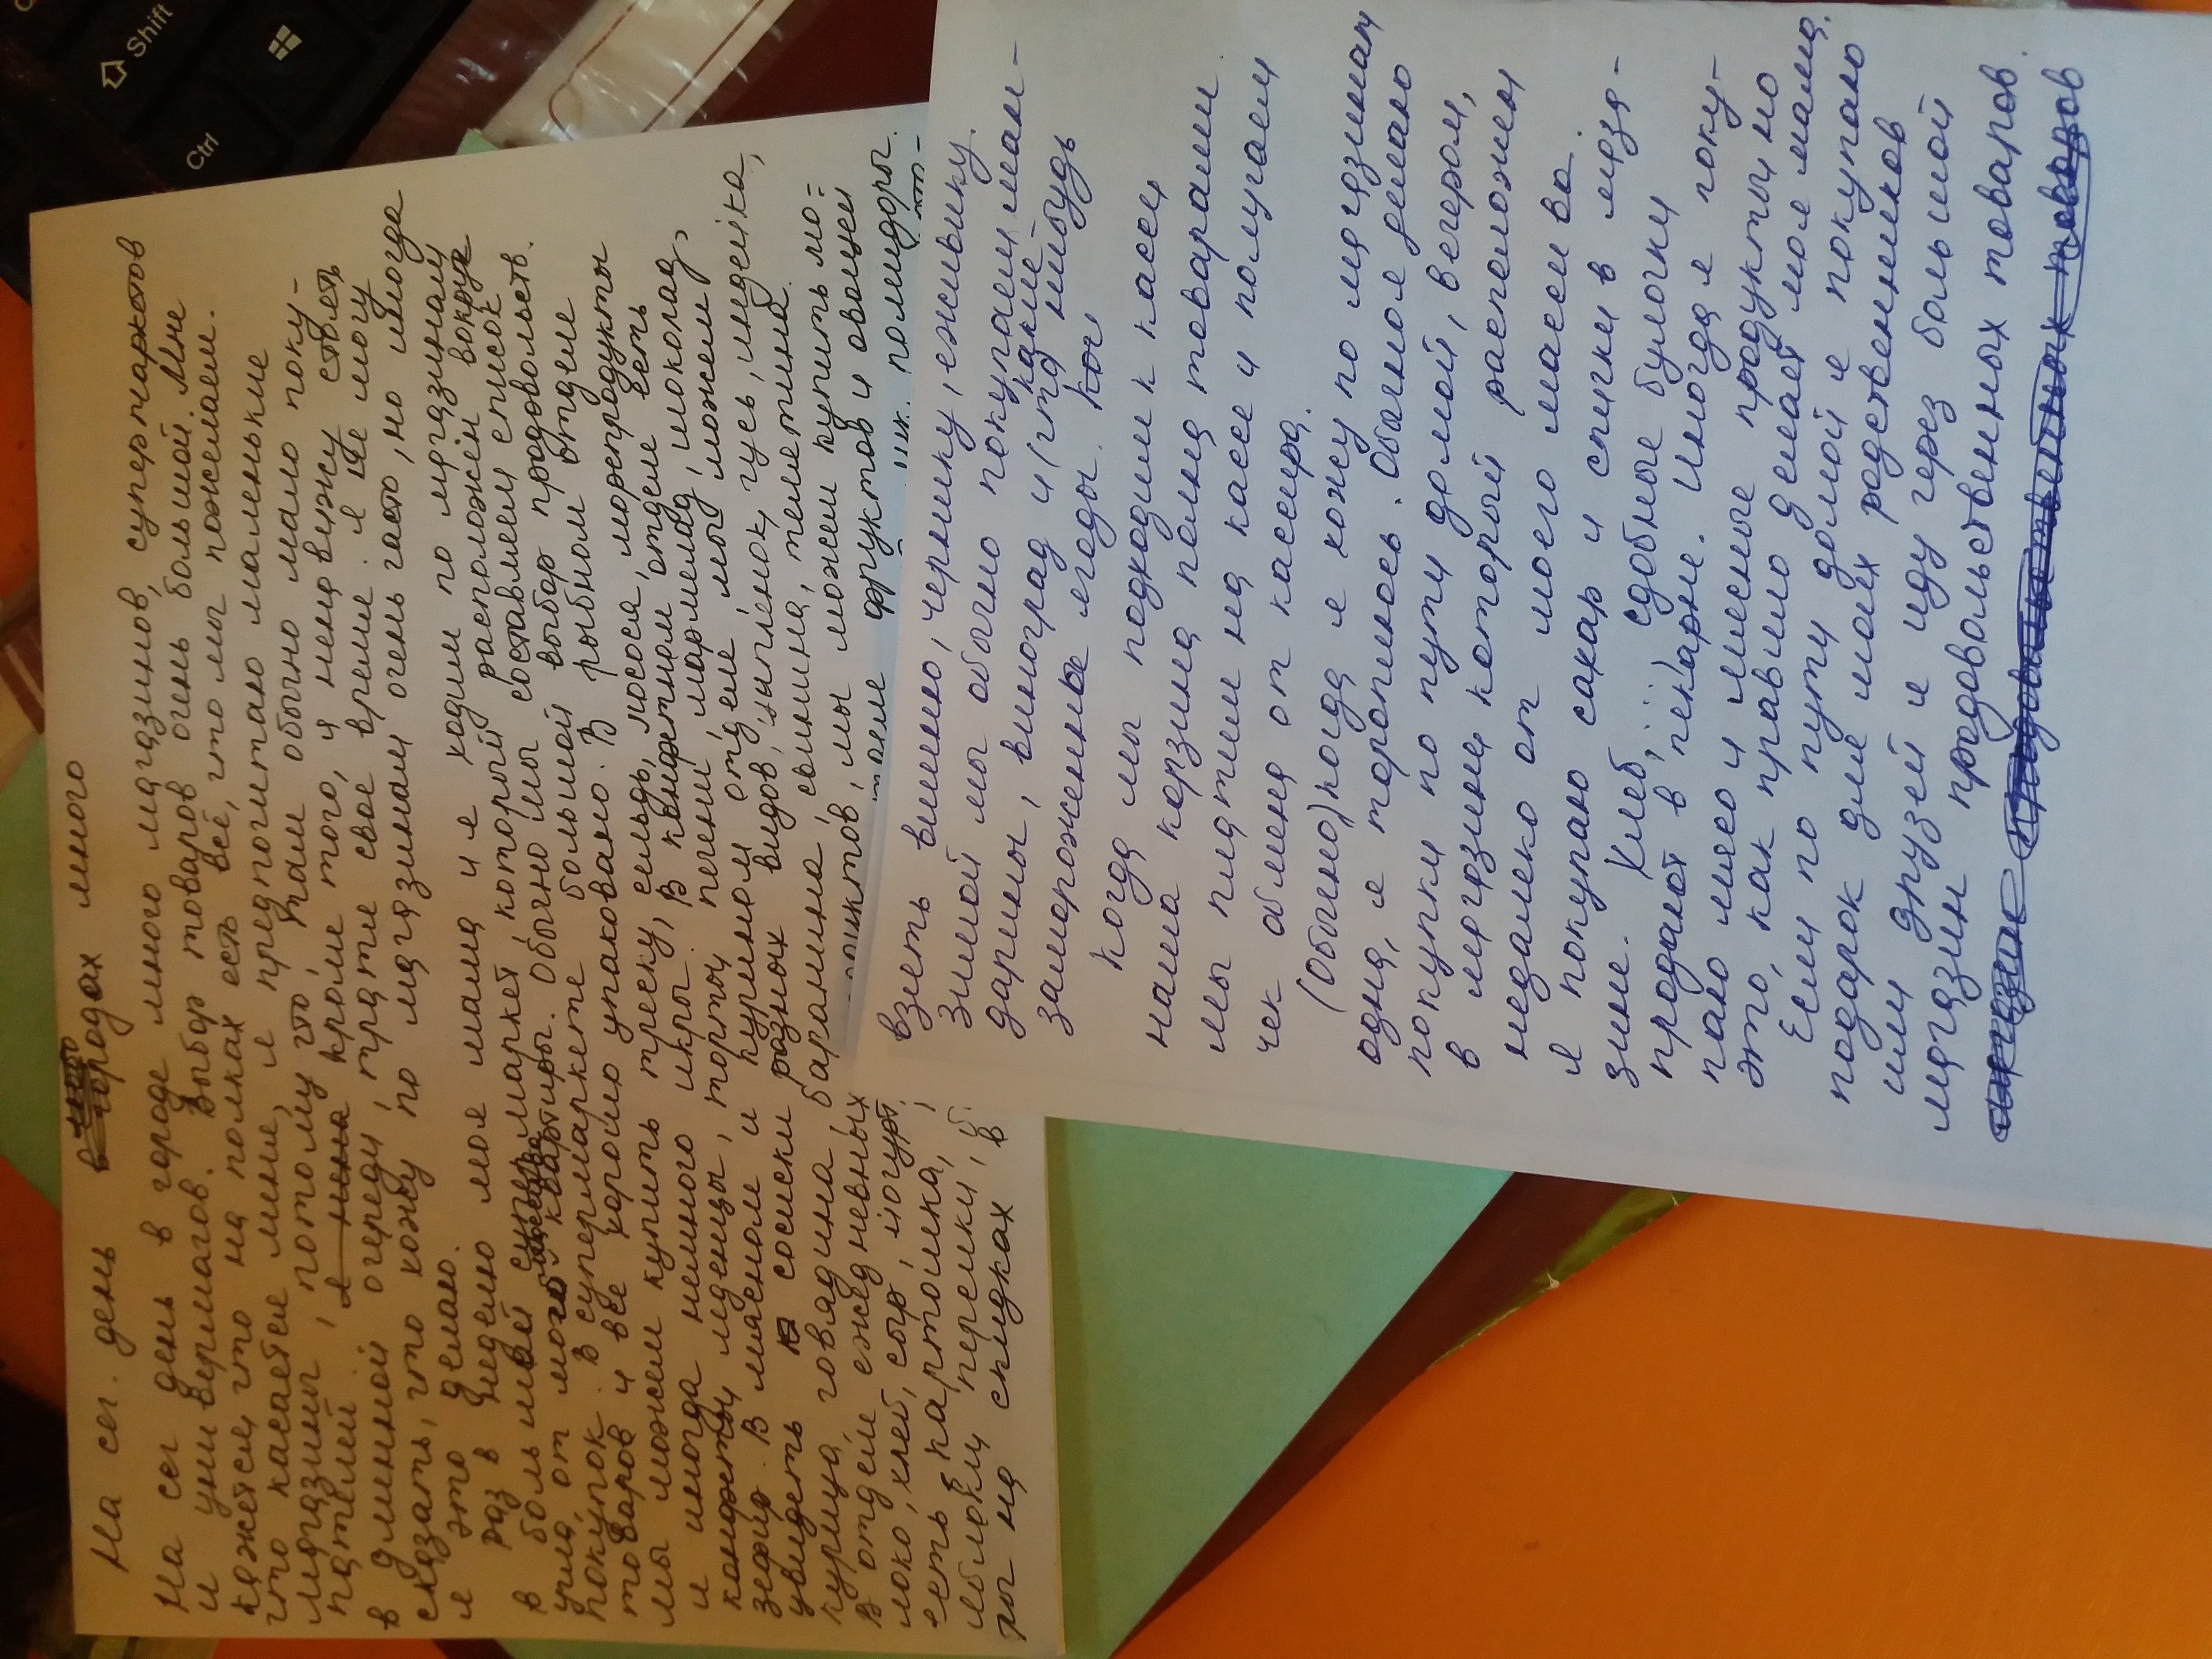 Shift
Ctrl
На сег. день в городах много
На сег день в городе много магазинов, супермаркетов
и универмагов. Выбор товаров очень большой. Мне
кажется, что на полках есть всё, что мы пожелаем.
что касается меня, я предпочитаю маленькие
магазины, потому что, там обычно мало поку-
пателей, я мена кроме того, я ненавижу стоять
в длинной очереди, тратя свое время. я не могу
сказать, что хожу по магазинам очень часто, но иногда
я это делаю.
раз в неделю моя мама и я ходим по магазинам
в большой супермаркет, который расположен вокруг
угла, от моей квартиры. Обычно мы составляем список
покупок. В супермаркете большой выбор продовольств.
товаров и все хорошо упаковано. В рыбном отделе
мы можем купить треску, сельдь, лосося, морепродукты
и иногда немного икры. В конфетном отделе есть
конфеты, леденцы, торты, печенье, мармелад, шоколад,
зефир. В мясном и курином отделе, мы можем
увидеть сосиски разных видов, цыпленок, гусь, индейка,
курица, говядина, баранина, свинина, телятина.
В отделе ежедневных продуктов, мы можем купить мо=
локо, хлеб, сыр, йогурт. фруктов и овощей
есть картошка, помидоры.
яблоки, персики,
на скидках в
взять вишню, чернику, ежевику.
зимой мы обычно покупаем ман-
дарины, виноград и (что какие-нибудь
замороженные ягоды. Ког
Когда мы подходим к кассе
наша корзина полна товарами.
мы платим на кассе и получаем
чек обмена от кассира.
(Обычно) когда я хожу по магазинам
одна, я тороплюсь. Обычно я делаю
покупки по пути домой, вечером,
в магазине который расположен
недалеко от моего масева.
я покупаю сахар и спички в мага-
зине. Хлеб, сдобные булочки
продают в пекарне. Иногда я поку-
паю мясо и мясные продукты но
это, как правило делает моя мама.
Если по пути домой я покупаю
подарок для моих родственников
или друзей я иду через большой
магазин продовольственных товаров.
магазин продовольственных товаров